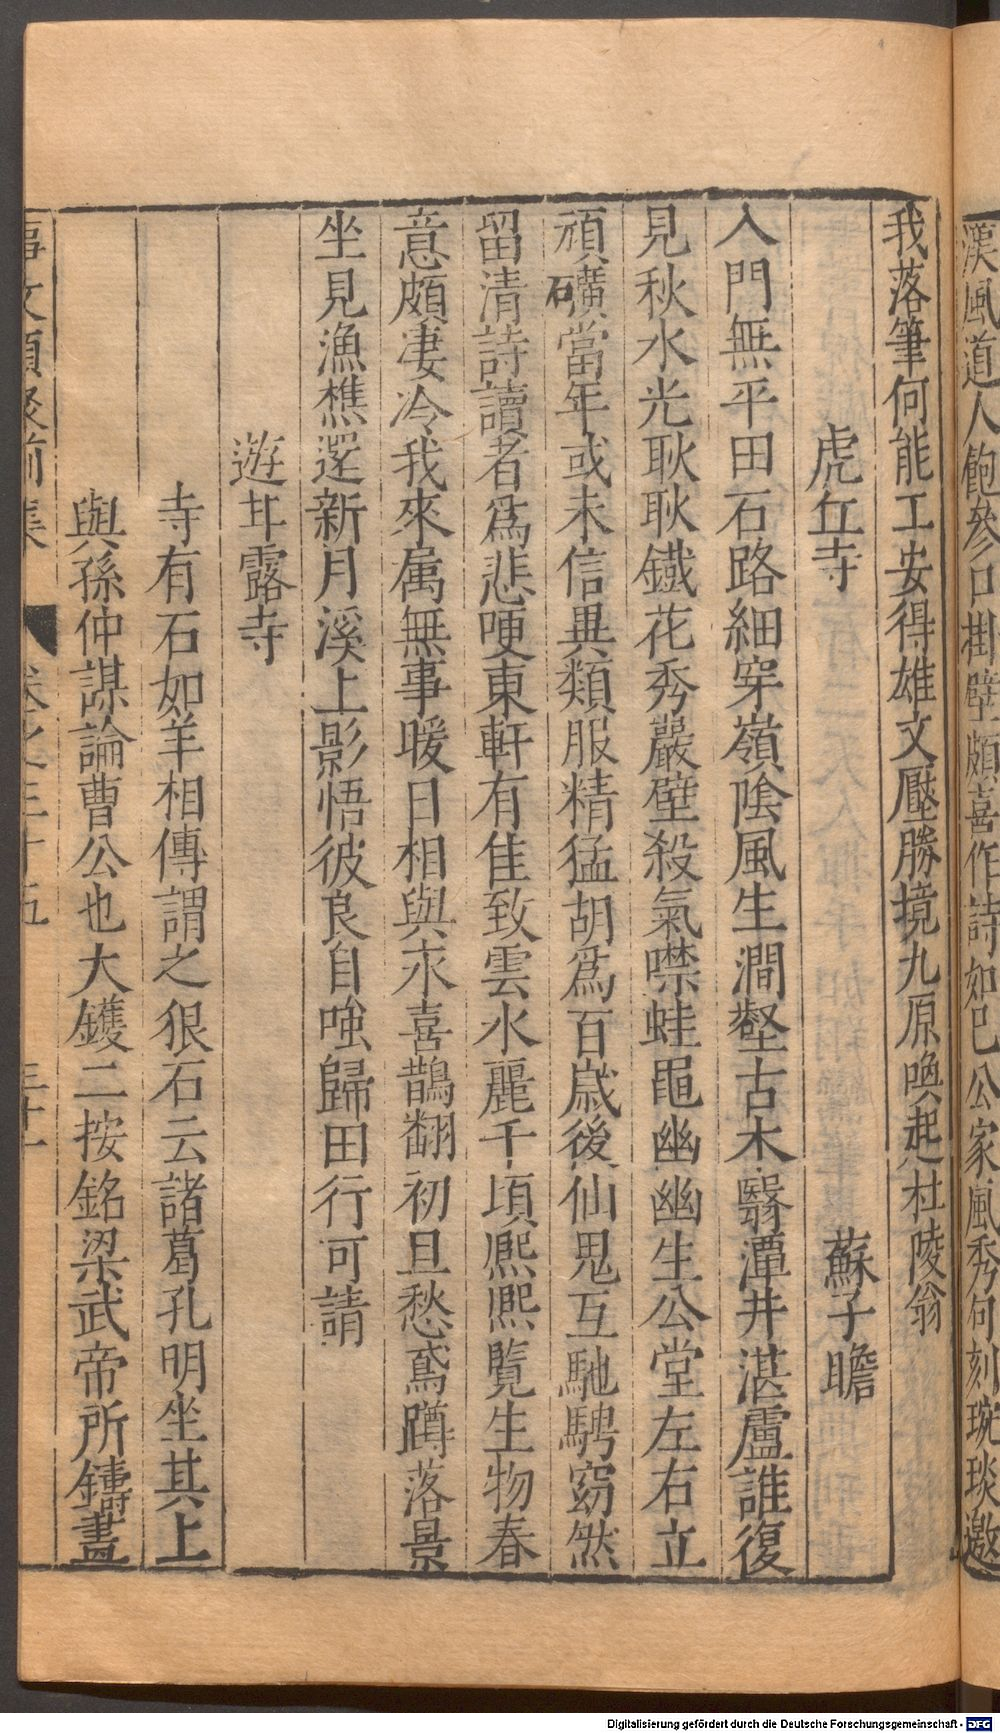 漢風道人飽參口掛壁頗喜作詩如巳公家風秀句刻琬琰邀
我落筆何能工安得雄文壓勝境九原喚起杜陵翁
虎丘寺　蘇子瞻
入門無平田石路細穿嶺陰風生澗壑古木翳潭井湛盧誰復
見秋水光耿耿鐵花秀巖壁殺氣噤蛙黽幽幽生公堂左右立
頑礦當年或未信異類服精猛胡爲百歲後仙鬼互馳騁窈然
留清詩讀者爲悲哽東軒有佳致雲水麗千頃熈熈覽生物春
意頗凄冷我來属無事暖日相與永喜鵲翻初旦愁鳶蹲落景
坐見漁樵還新月溪上影悟彼良自咍歸田行可請
遊甘露寺
寺有石如羊相傳謂之狠石云諸葛孔明坐其上
與孫仲謀論曹公也大鑊二按銘梁武帝所鑄畫
事文類聚前集　卷之三十五　三十一
Digitalisierung gefördert durch die Deutsche Forschungsgemeinschaft - DFG